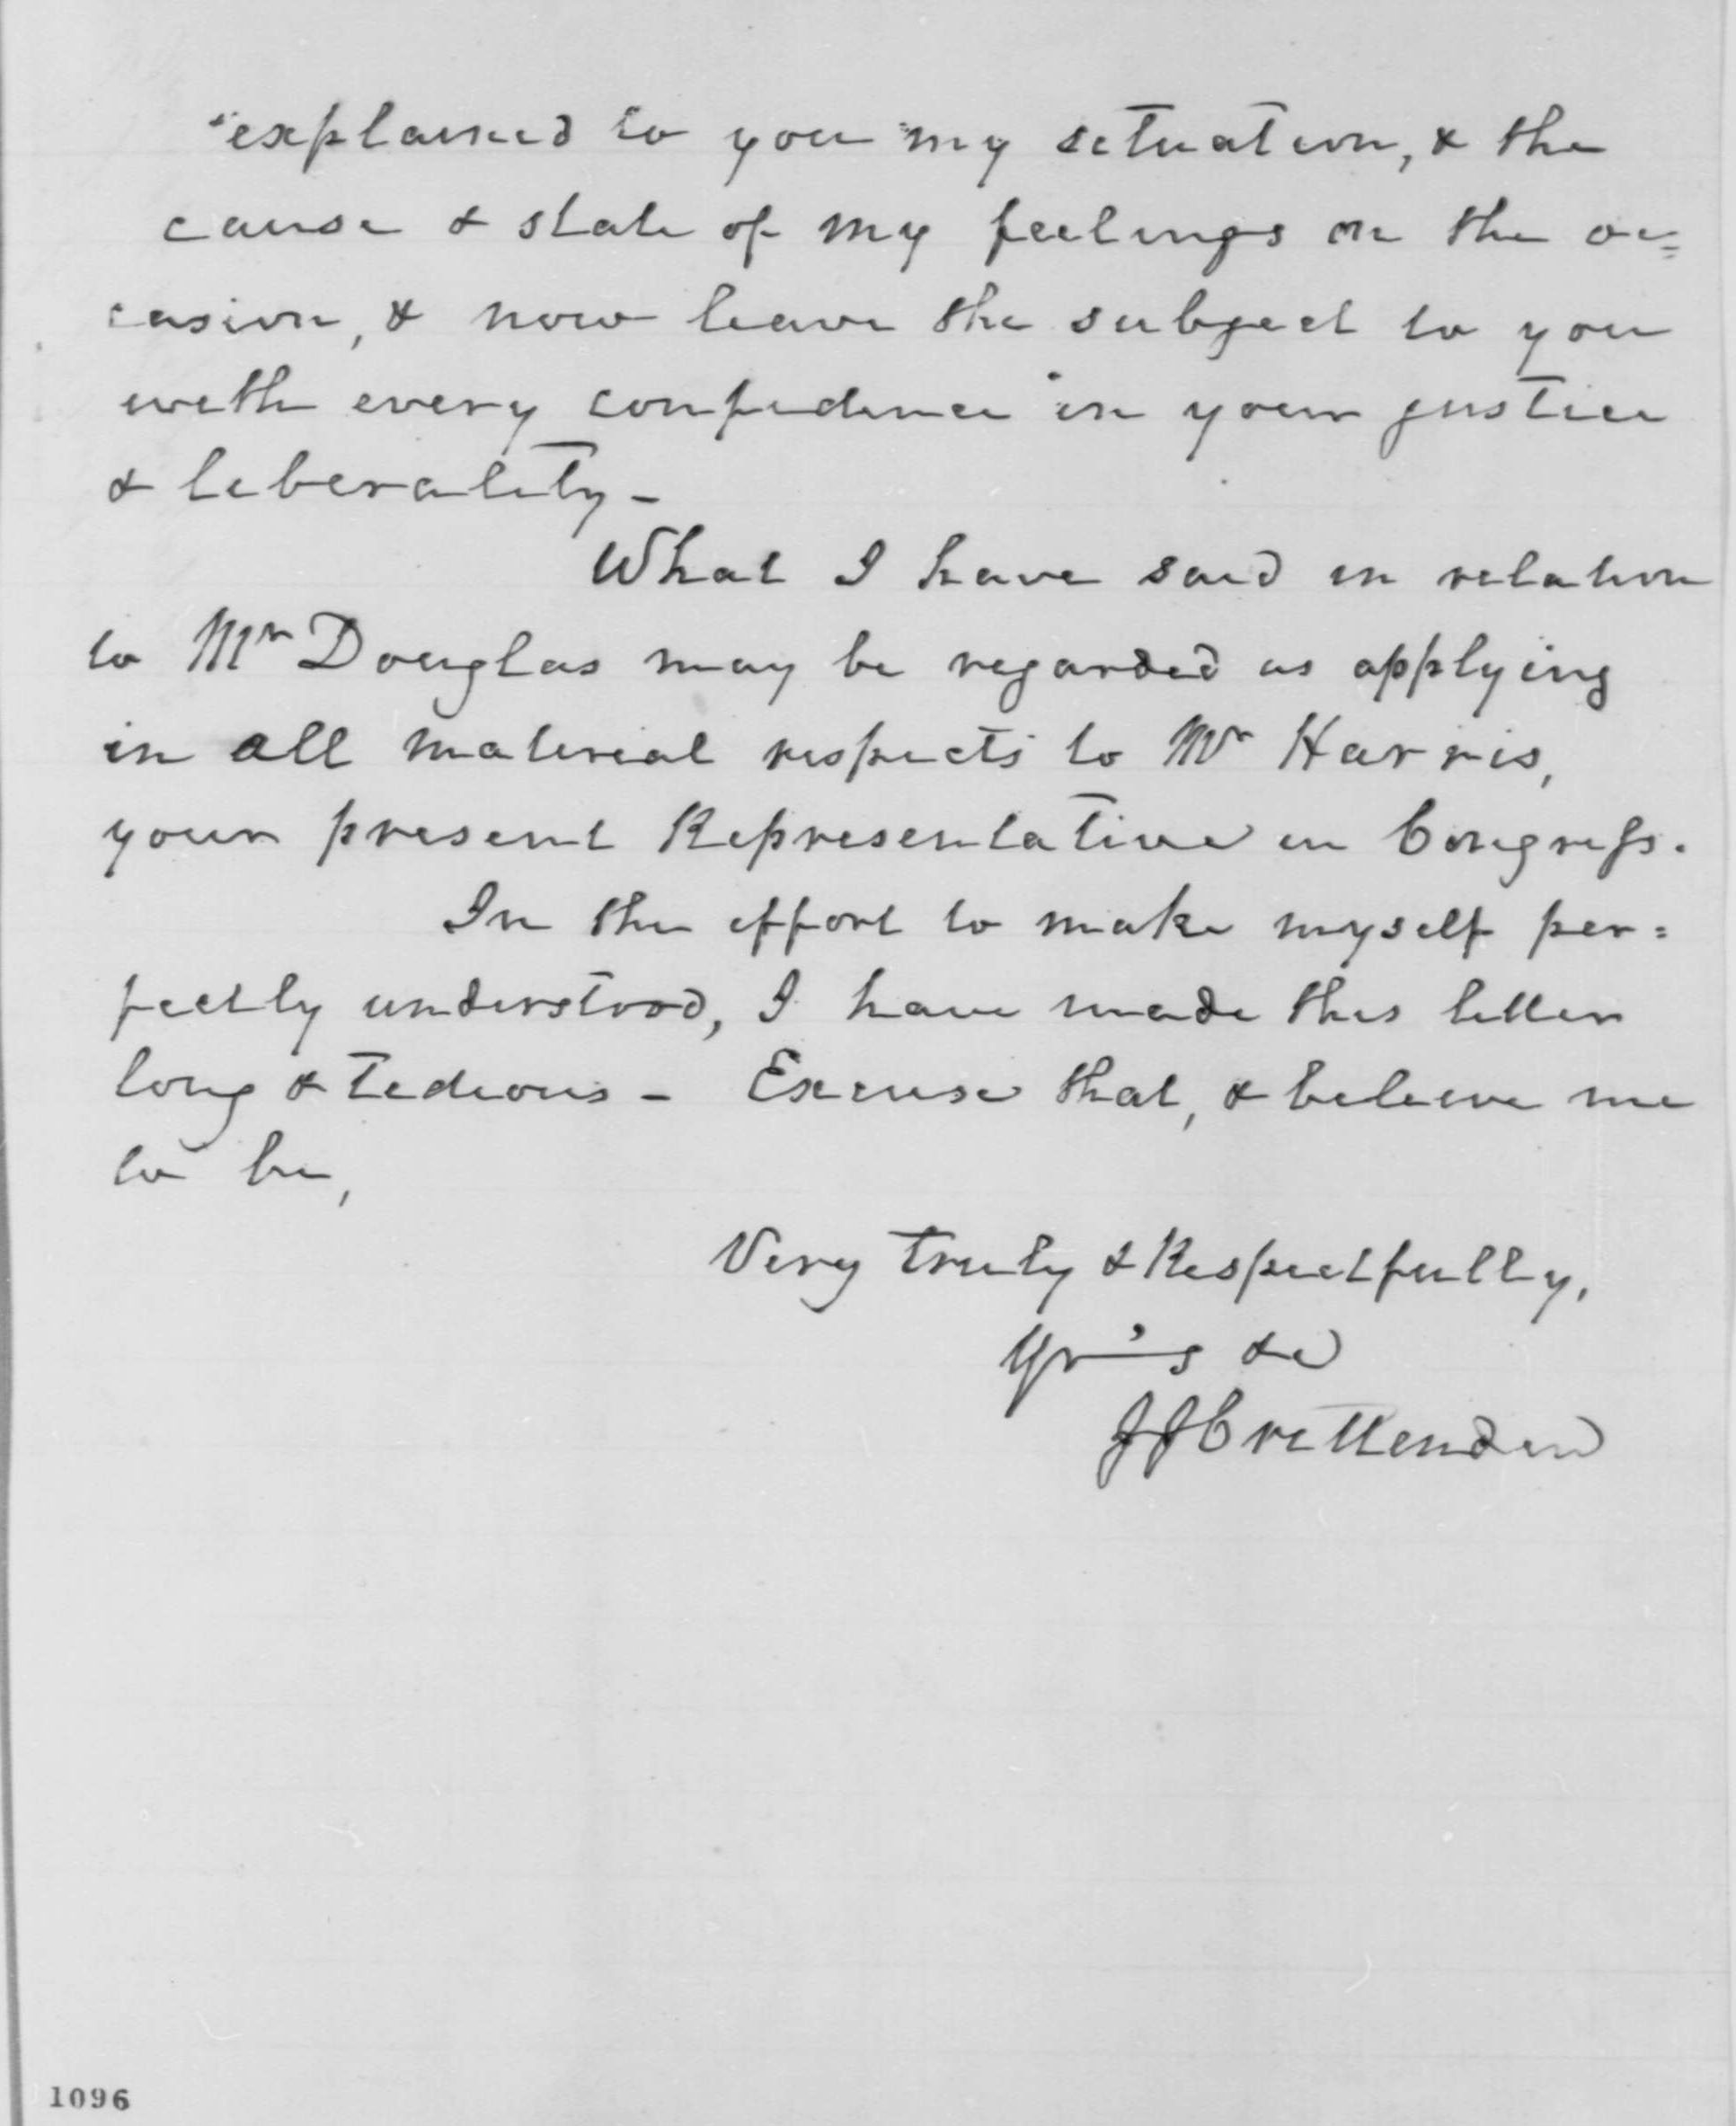 explained to you my situation, & the
cause & state of my feelings on the oc=
casion, & now leave the subject to you
with every confidence in your justice
& liberality -
What I have said in relation
to Mr Douglas may be regarded as applying
in all material respects to Mr Harris,
your present Representative in Congress.
In the effort to make myself per=
fectly understood, I have made this letter
long & tedious - Excuse that, & believe me
to be,
Very truly & Respectfully,
Yr's &c
J J Crittenden
1096